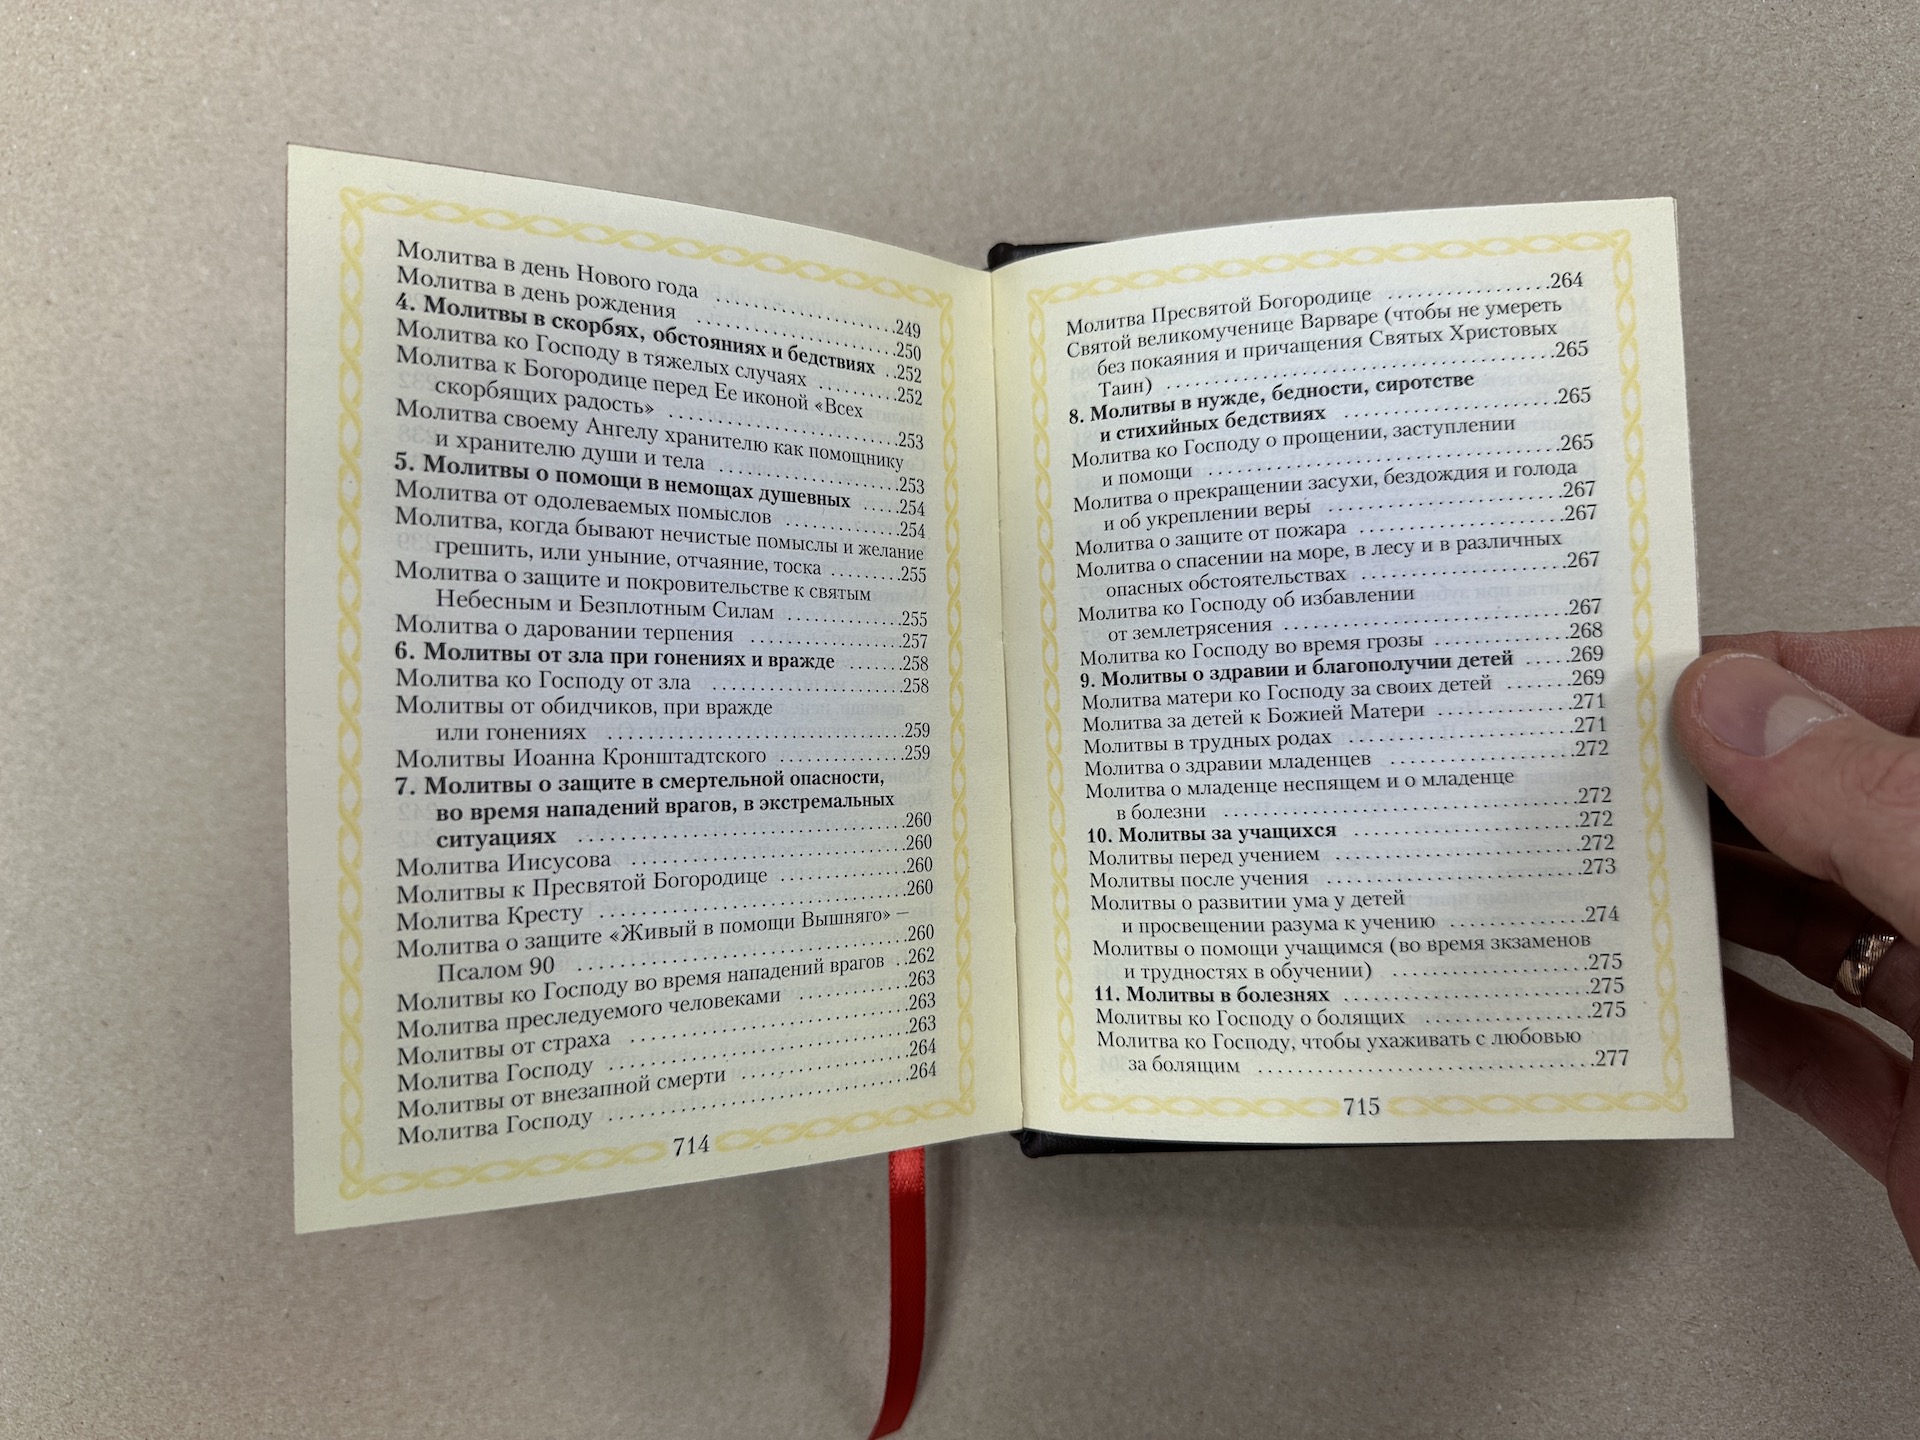 Молитва в день Нового года ....................249
Молитва в день рождения ......................250
4. Молитвы в скорбях, обстояниях и бедствиях ..252
Молитва ко Господу в тяжелых случаях .........252
Молитва к Богородице перед Ее иконой «Всех
скорбящих радость» .......................253
Молитва своему Ангелу хранителю как помощнику
и хранителю души и тела ....................253
5. Молитвы о помощи в немощах душевных .....254
Молитва от одолеваемых помыслов ..............254
Молитва, когда бывают нечистые помыслы и желание
грешить, или уныние, отчаяние, тоска .........255
Молитва о защите и покровительстве к святым
Небесным и Безплотным Силам .............255
Молитва о даровании терпения .................257
6. Молитвы от зла при гонениях и вражде .......258
Молитва ко Господу от зла .....................258
Молитвы от обидчиков, при вражде
или гонениях ..............................259
Молитвы Иоанна Кронштадтского ..............259
7. Молитвы о защите в смертельной опасности,
во время нападений врагов, в экстремальных
ситуациях ................................260
Молитва Иисусова .............................260
Молитвы к Пресвятой Богородице ..............260
Молитва Кресту ...............................260
Молитва о защите «Живый в помощи Вышняго» –
Псалом 90 ................................260
Молитвы ко Господу во время нападений врагов ..262
Молитва преследуемого человеками .............263
Молитвы от страха .............................263
Молитва Господу ..............................263
Молитвы от внезапной смерти .................264
Молитва Господу ..............................264
714
Молитва Пресвятой Богородице .................264
Святой великомученице Варваре (чтобы не умереть
без покаяния и причащения Святых Христовых
Таин) ....................................265
8. Молитвы в нужде, бедности, сиротстве
и стихийных бедствиях .....................265
Молитва ко Господу о прощении, заступлении
и помощи .................................265
Молитва о прекращении засухи, бездождия и голода
и об укреплении веры ........................267
Молитва о защите от пожара ....................267
Молитва о спасении на море, в лесу и в различных
опасных обстоятельствах .....................267
Молитва ко Господу об избавлении
от землетрясения ...........................267
Молитва ко Господу во время грозы ..............268
9. Молитвы о здравии и благополучии детей .....269
Молитва матери ко Господу за своих детей .......269
Молитва за детей к Божией Матери ..............271
Молитвы в трудных родах ......................271
Молитва о здравии младенцев ..................272
Молитва о младенце неспящем и о младенце
в болезни .................................272
10. Молитвы за учащихся .......................272
Молитвы перед учением .......................272
Молитвы после учения ........................273
Молитвы о развитии ума у детей
и просвещении разума к учению .............274
Молитвы о помощи учащимся (во время экзаменов
и трудностях в обучении) ...................275
11. Молитвы в болезнях .......................275
Молитвы ко Господу о болящих ................275
Молитва ко Господу, чтобы ухаживать с любовью
за болящим ...............................277
715